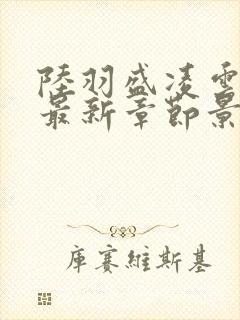 陸羽盛凌雲
最新章節景
庫賽維斯基